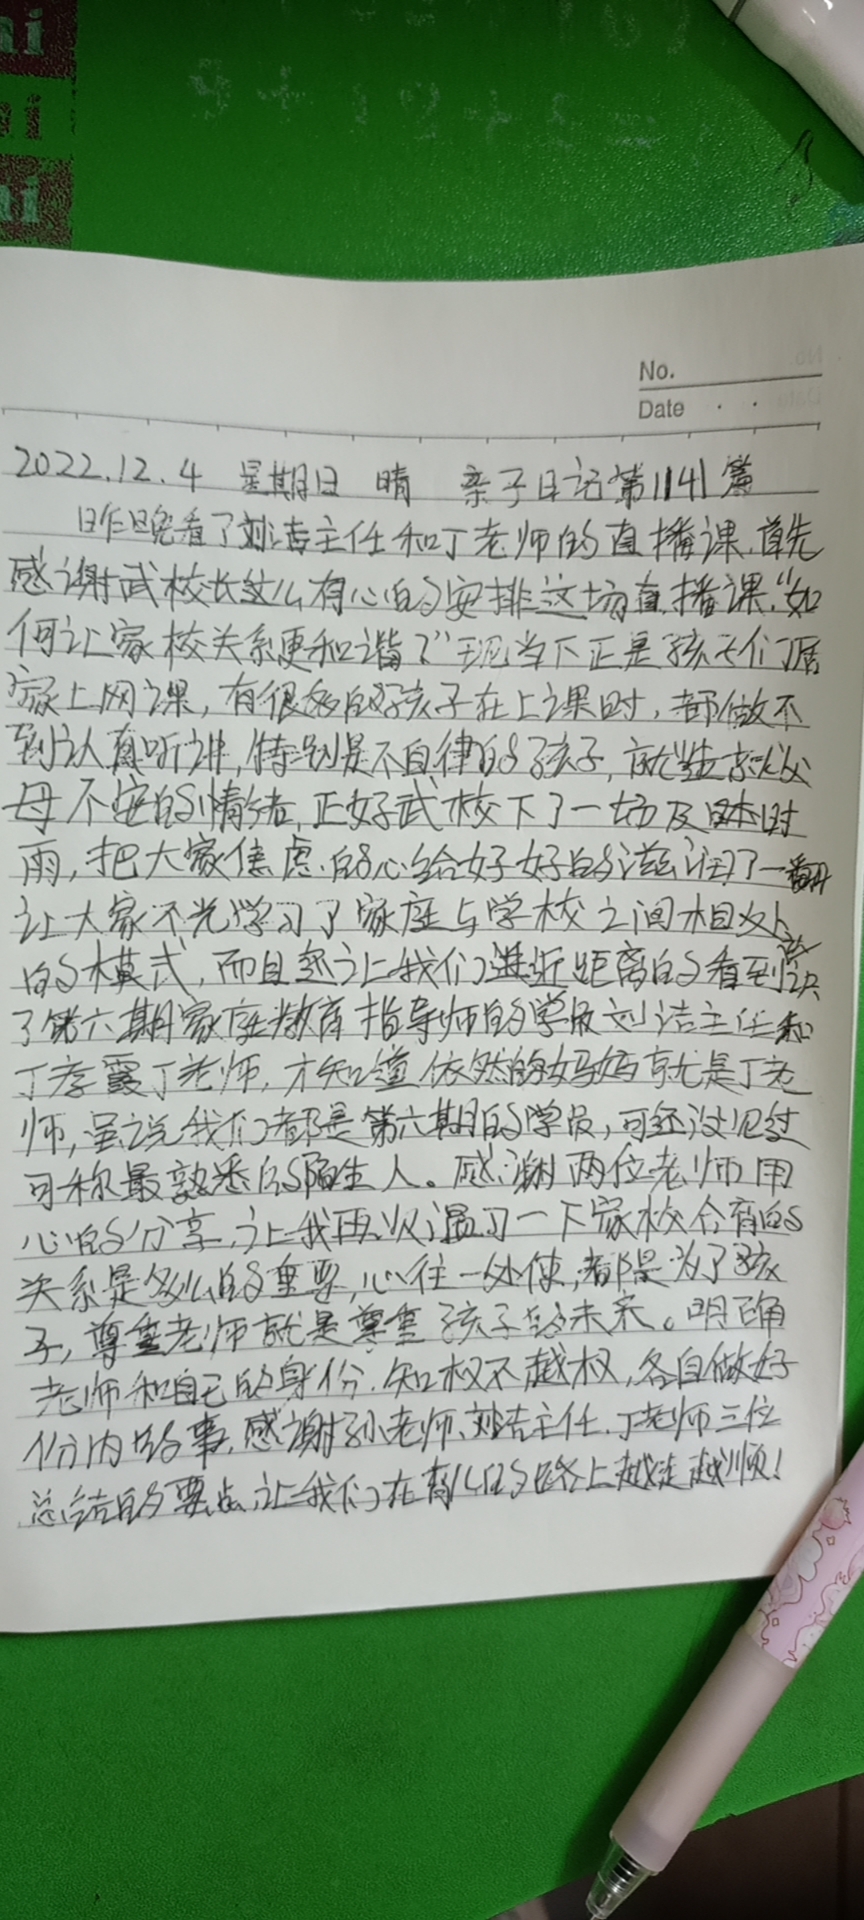 No.
Date
2022.12.4 星期日 晴 亲子日记第1141篇
昨晚看了刘洁主任和丁老师的直播课.首先
感谢武校长这么有心的安排这场直播课."如
何让家校关系更和谐了"现当下正是孩子们居
家上网课,有很多的好孩子在上课时,都做不
到认真听讲,特别是不自律的孩子,就造成父
母不安的情绪,正好武校下了一场及时
雨,把大家焦虑的心给好好的滋润了一翻
让大家不光学习了家庭与学校之间相处
的模式,而且让我们进近距离的看到
了第六期家庭教育指导师的学员刘洁主任和
丁孝霞丁老师,才知道依然的妈妈就是丁老
师,虽说我们都是第六期的学员,可还没见过
可称最熟悉的陌生人。感谢两位老师用
心的分享,让我再次温习一下家校合育的
关系是多么的重要,心往一处使,都是为了孩
子,尊重老师就是尊重孩子的未来。明确
老师和自己的身份.知权不越权,各自做好
份内的事,感谢孙老师、刘洁主任.丁老师三位
总结的要点,让我们在育儿的路上越走越顺!